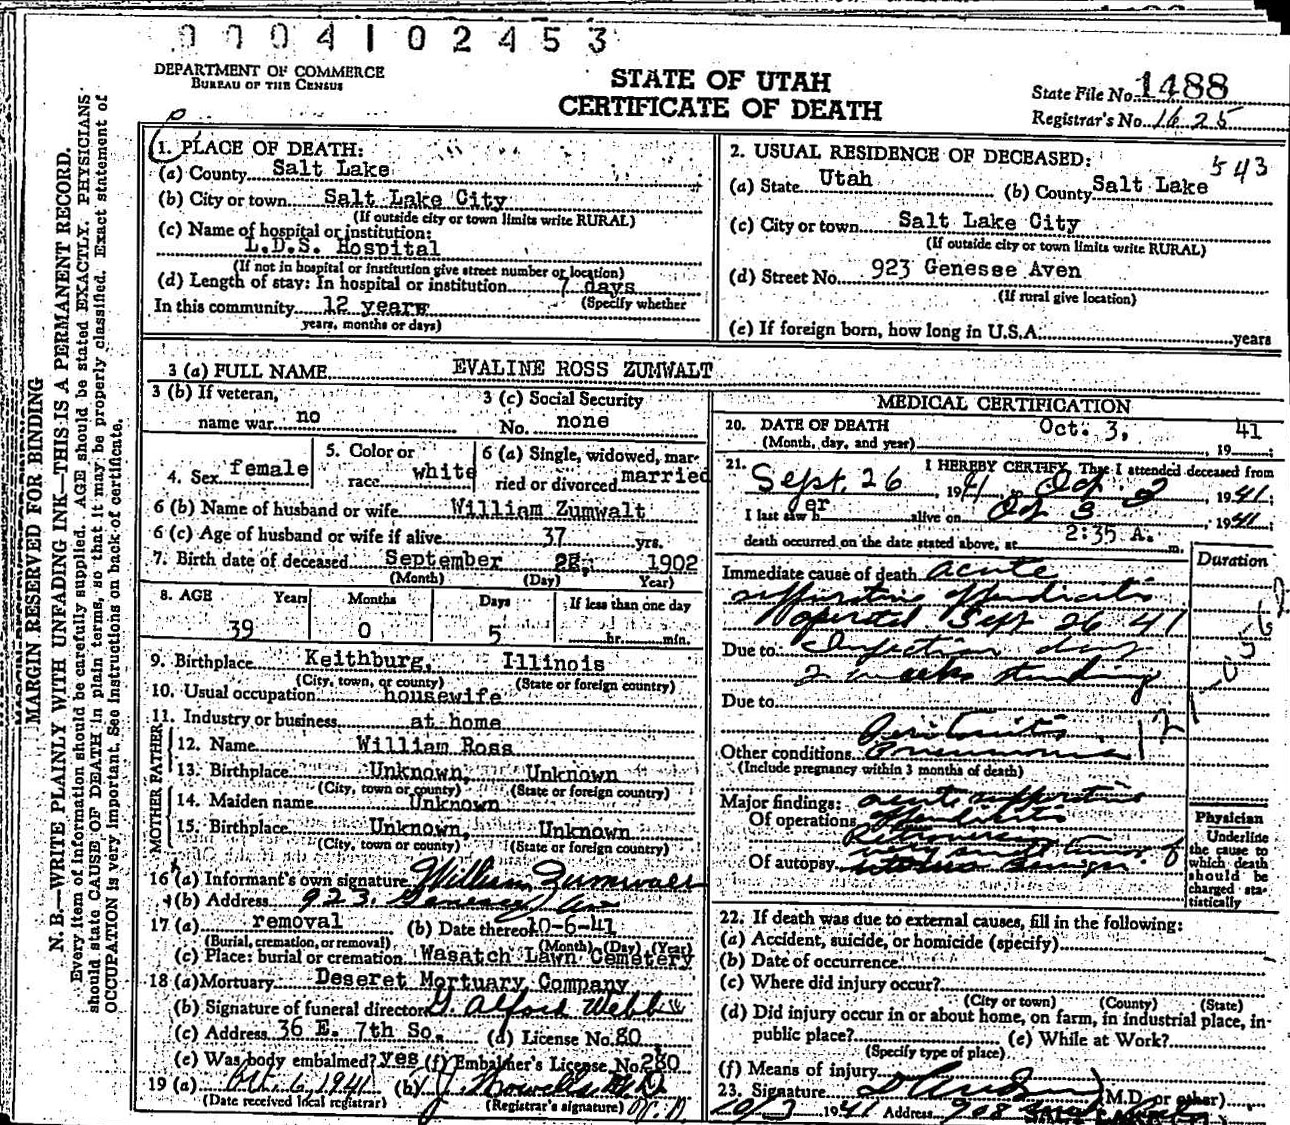 0004102453
DEPARTMENT OF COMMERCE
BUREAU OF THE CENSUS
STATE OF UTAH
CERTIFICATE OF DEATH
State File No. 1488
Registrar's No. 1625
MARGIN RESERVED FOR BINDING
N. B.—WRITE PLAINLY WITH UNFADING INK—THIS IS A PERMANENT RECORD.
Every item of information should be carefully supplied. AGE should be stated EXACTLY. PHYSICIANS
should state CAUSE OF DEATH in plain terms, so that it may be properly classified. Exact statement of
OCCUPATION is very important. See instructions on back of certificate.
1. PLACE OF DEATH:
(a) County Salt Lake
(b) City or town Salt Lake City
(If outside city or town limits write RURAL)
(c) Name of hospital or institution:
L.D.S. Hospital
(If not in hospital or institution give street number or location)
(d) Length of stay: In hospital or institution 7 days
(Specify whether
In this community 12 years
years, months or days)
2. USUAL RESIDENCE OF DECEASED: 543
(a) State Utah (b) County Salt Lake
(c) City or town Salt Lake City
(If outside city or town limits write RURAL)
(d) Street No. 923 Genesee Aven
(If rural give location)
(e) If foreign born, how long in U.S.A. years
3 (a) FULL NAME EVALINE ROSS ZUMWALT
3 (b) If veteran,
name war no
3 (c) Social Security
No. none
4. Sex female
5. Color or
race white
6 (a) Single, widowed, mar-
ried or divorced married
6 (b) Name of husband or wife William Zumwalt
6 (c) Age of husband or wife if alive 37 yrs.
7. Birth date of deceased September 28, 1902
(Month) (Day) Year)
8. AGE Years Months Days If less than one day
39 0 5 hr. min.
9. Birthplace Keithburg, Illinois
(City, town, or county) (State or foreign country)
10. Usual occupation housewife
11. Industry or business at home
FATHER
12. Name William Ross
13. Birthplace Unknown, Unknown
(City, town or county) (State or foreign country)
MOTHER
14. Maiden name Unknown
15. Birthplace Unknown, Unknown
(City, town or county) (State or foreign country)
16 (a) Informant's own signature William Zumwalt
(b) Address 923 Genesee Ave
17 (a) removal (b) Date thereof 10-6-41
(Burial, cremation, or removal) (Month) (Day) (Year)
(c) Place: burial or cremation Wasatch Lawn Cemetery
18 (a) Mortuary Deseret Mortuary Company
(b) Signature of funeral director G. Alford Webb
(c) Address 36 E. 7th So. (d) License No. 80
(e) Was body embalmed? yes (f) Embalmer's License No. 280
19 (a) Oct. 6, 1941 (b)
(Date received local registrar) (Registrar's signature)
MEDICAL CERTIFICATION
20. DATE OF DEATH Oct. 3, 41
(Month, day, and year) , 19
21. I HEREBY CERTIFY, That I attended deceased from
Sept. 26, 1941 Oct. 2, 1941;
I last saw her alive on Oct 3, 1941;
death occurred on the date stated above, at 2:35 A. m.
Duration
Immediate cause of death acute
suppurative appendicitis
operated Sept 26 41
Due to Infection
2 weeks standing
Due to
Peritonitis
Other conditions Pneumonia
(Include pregnancy within 3 months of death)
Major findings: acute suppurative
Of operations appendicitis
Of autopsy
Physician
Underline
the cause to
which death
should be
charged sta-
tistically
22. If death was due to external causes, fill in the following:
(a) Accident, suicide, or homicide (specify)
(b) Date of occurrence
(c) Where did injury occur?
(City or town) (County) (State)
(d) Did injury occur in or about home, on farm, in industrial place, in
public place? (e) While at Work?
(Specify type of place)
(f) Means of injury
23. Signature (M.D. or other)
10/3 1941 Address 908